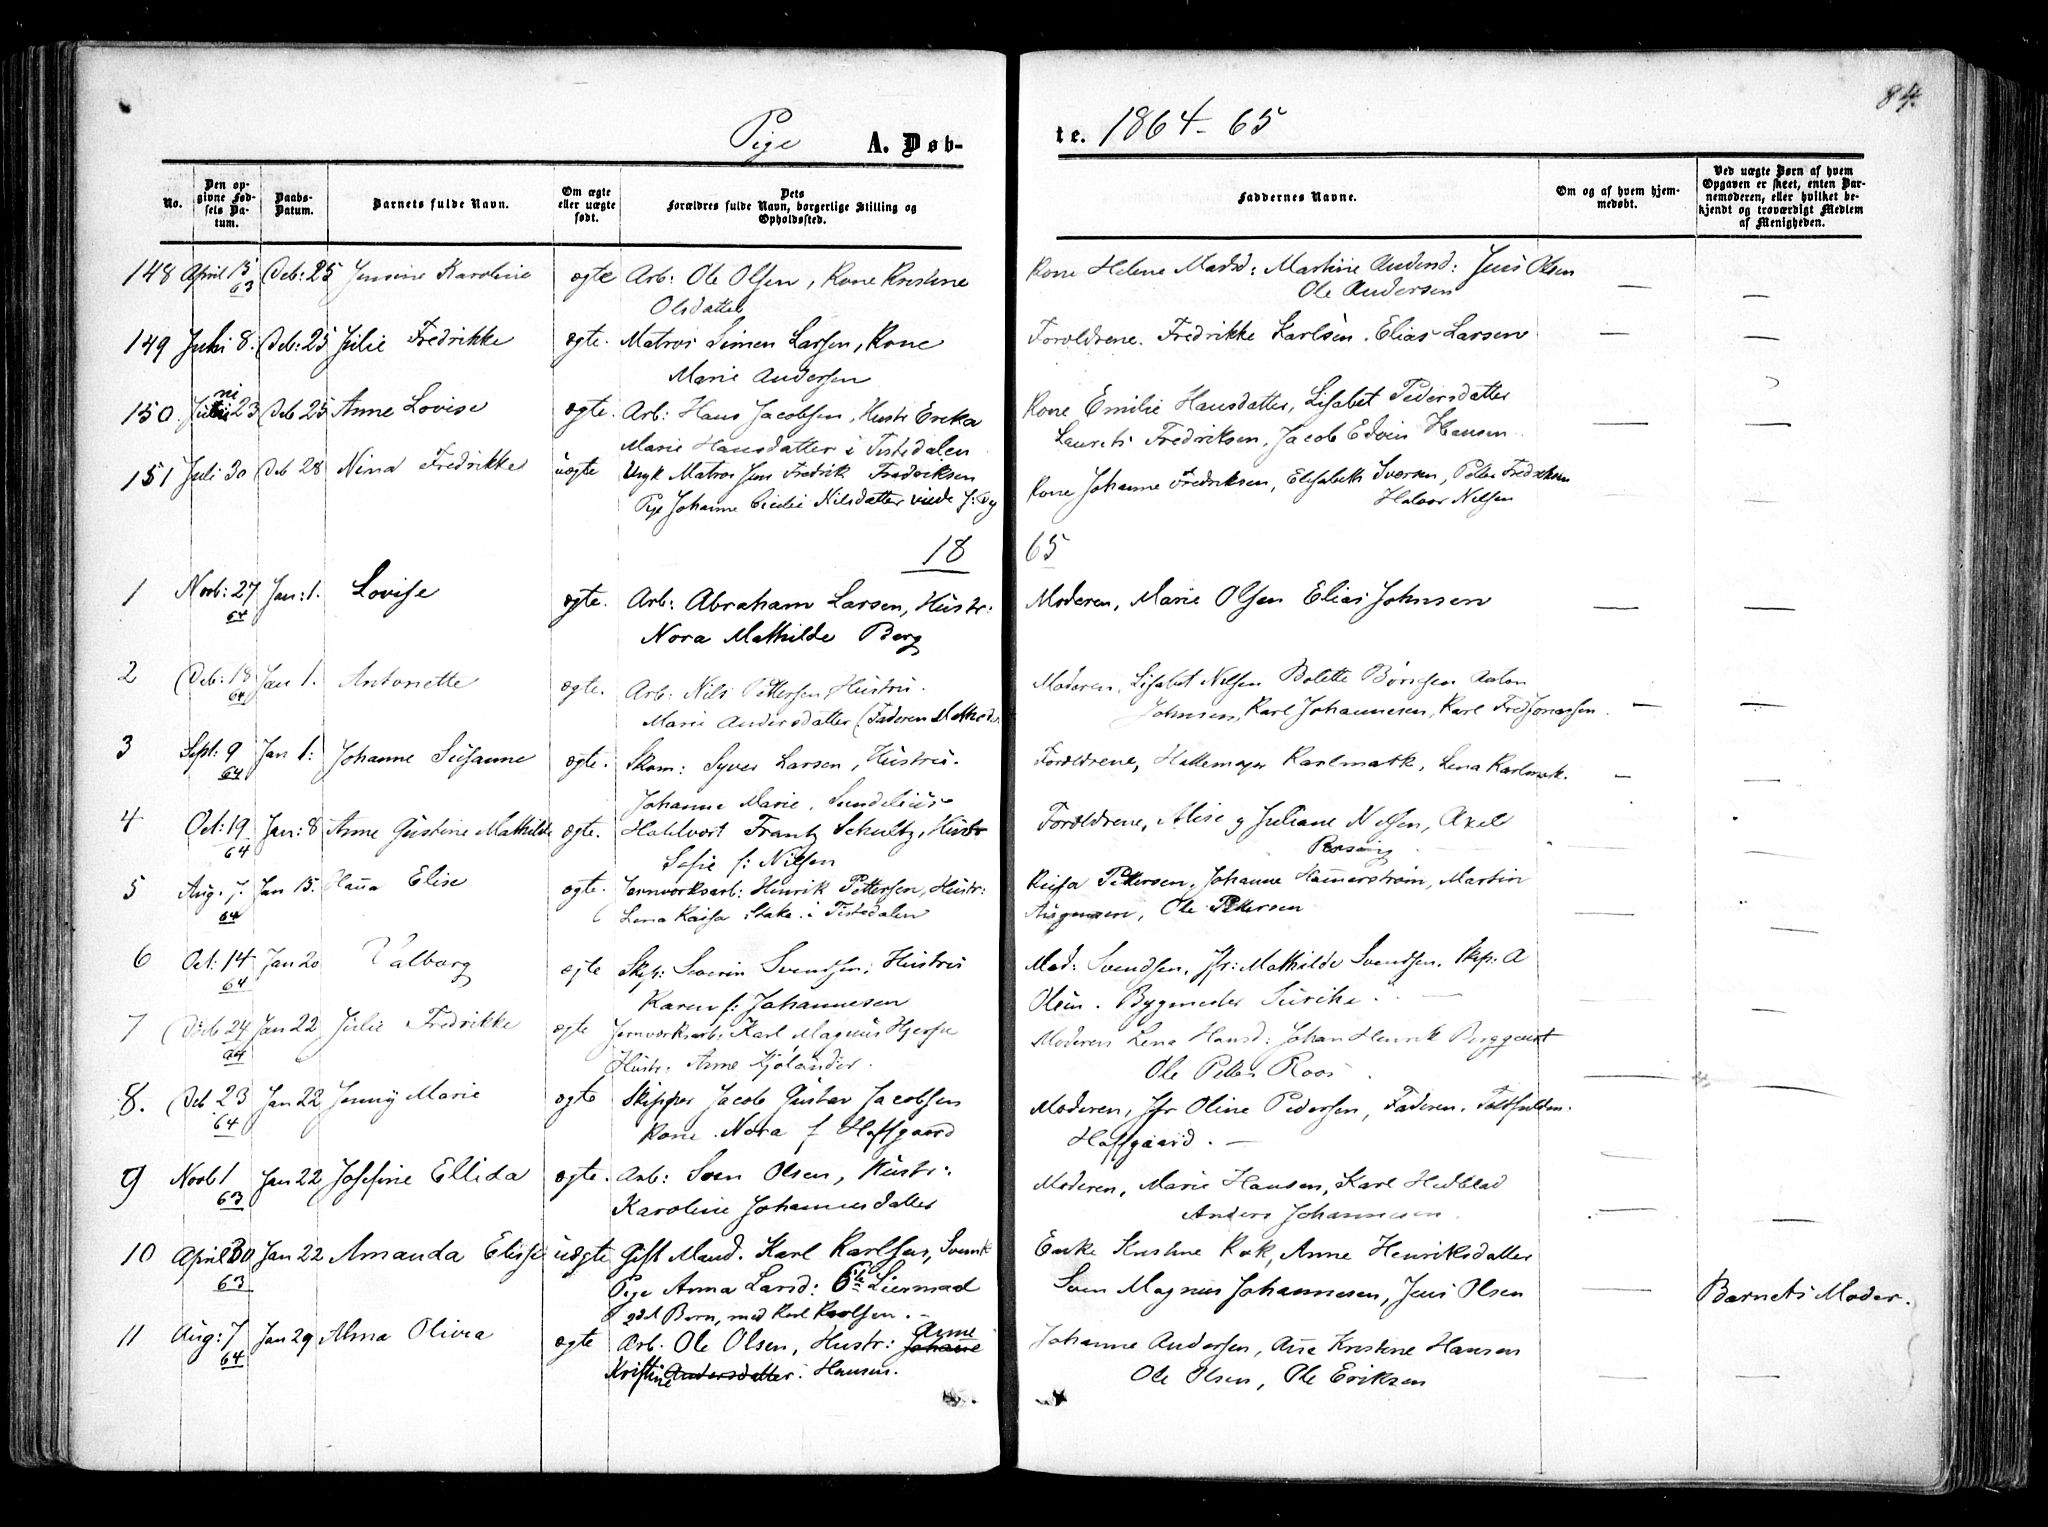 84.
Pige A. Døb-
te. 1864-65
No.
Den op-
givne Fød-
sels Da-
tum.
Daabs-
Datum.
Barnets fulde Navn.
Om ægte
eller uægte
født.
Dets
Forældres fulde Navn, borgerlige Stilling og
Opholdssted.
Faddernes Navne.
Om og af hvem hjem-
medøbt.
Ved uægte Børn af hvem
Opgaven er skeet, enten Bar-
nemoderen, eller hvilket be-
kjendt og troværdigt Medlem
af Menigheden.
148 April 15 63 Deb: 25 Jensine Karoline ægte Arb: Ole Olsen, Kone Kristine
Olsdatter
Kone Helene Madsd: Martine Andersd: Jens Olsen
Ole Andersen
149 Juli 8. Deb: 25 Julie Fredrikke ægte. Matros Simen Larsen, Kone
Marie Andersen
Forældrene. Fredrikke Karlsen. Elias Larsen
150. Juni 23 Deb 25 Anne Lovise ægte. Arb: Hans Jacobsen, Hustr Ereka
Marie Hansdatter i Tistedalen
Kone Emilie Hansdatter, Lisabet Pedersdatter
Laurets Fredriksen, Jacob Edvin Hansen
151 Juli 30 Deb 28 Nina Fredrikke uægte Ungk Matros Jens Fredrik Fredriksen
Pige Johanne Cicilie Nilsdatter viede
Kone Johanne Fredriksen, Elisabeth Iversen, Peter Fredriksen
Halvor Nilsen
18 65
1 Novb: 27 64 Jan: 1. Lovise ægte. Arb: Abraham Larsen, Hustr:
Nora Mathilde Berg
Moderen, Marie Olsen Elias Johnsen
2 Deb: 18 64 Jan 1. Antonette ægte. Arb: Nils Pettersen, Hustru.
Marie Andersdatter (Faderen Methodis
Moderen, Lisabet Nilsen Bolette Børresen Anton
Johnsen, Karl Johannesen, Karl Fred Jonassen.
3 Sept: 9 64 Jan 1: Johanne Susanne ægte. Skom: Syver Larsen, Hustru.
Johanne Marie Sundelius
Forældrene, Karlmark, Lena Karlmark.
4 Oct: 19 64 Jan: 8 Anne Gustine Mathilde ægte. Frantz Schultz, Hustr
Sofie f: Nilsen
Forældrene, Alise g Juliane Nilsen, Axel
5 Aug. 7. 64 Jan 15. Hanna Elise ægte. Jernverksarb: Henrik Pettersen, Hustr:
Lena Kaisa Stake i Tistedalen
Kaisa Pettersen, Johanne Hammerstrøm, Martin
Ole Pettersen
6 Oct: 14 64 Jan 20 Valborg ægte Skip: Severin Svendsen, Hustru
Karen f: Johannesen
Mad: Svendsen, Jfr: Mathilde Svendsen. Skip: A
Olsen. Bygmester
7 Deb 24 64 Jan 22 Julie Fredrikke ægte Jernverksarb: Karl Magnus Hjerpe
Hustr: Anne Kjølander.
Moderen Lena Hansd: Johan Henrik Berggvist
Ole Petter Roos
8. Deb 23 64 Jan 22 Jenny Marie ægte Skipper Jacob Gustav Jacobsen
Kone Nora f Hoffgaard
Moderen, Jfr Oline Pedersen, Faderen.
Hoffgaard.
9 Novb 1 63 Jan 22 Josefine Ellida ægte. Arb: Sven Olsen, Hustr:
Karoline Johannesdatter
Moderen, Marie Hansen, Karl Hedblad
Anders Johannesen
10 April 30 63 Jan 22 Amanda Elise uægte Gift Mand. Karl Karlsen, Svensk
Pige Anna Larsd:
2det Barn, med Karl Karlsen.
Enke Kristine Rok, Anne Henriksdatter
Sven Magnus Johannesen, Jens Olsen
Barnets Moder.
11 Aug: 7 64 Jan 29 Alma Olivia ægte Arb. Ole Olsen, Hustr: Johanne Anne
Kristine Andersdatter. Hansen.
Johanne Andersen, Ane Kristine Hansen
Ole Olsen, Ole Eriksen